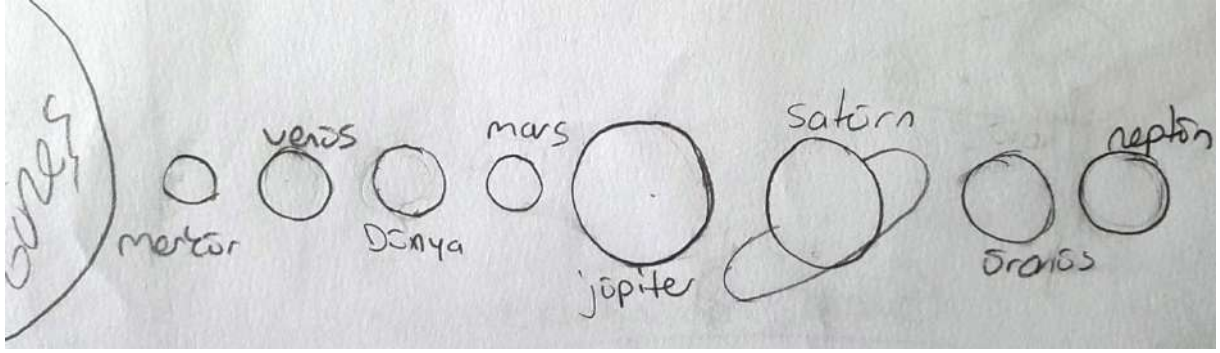 Güneş
merkür
venüs
Dünya
mars
jüpiter
satürn
üranüs
neptün